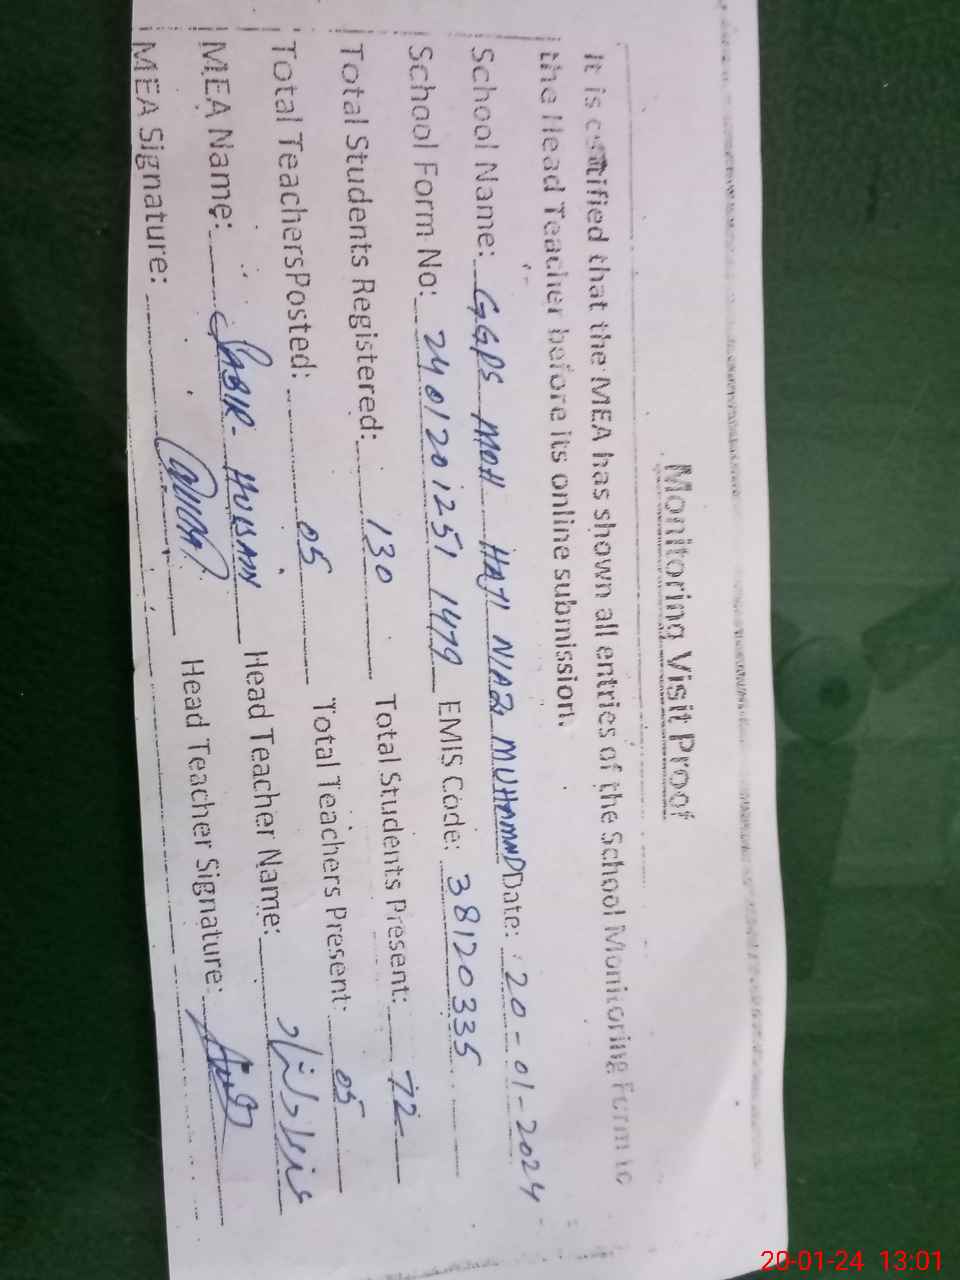 Monitoring Visit Proof
It is certified that the MEA has shown all entries of the School Monitoring Form to
the Head Teacher before its online submission.
School Name: GGPS MOH HAJI NIAZ MUHAMMD Date: 20-01-2024
School Form No: 24012012511479 EMIS Code: 38120335
Total Students Registered: 130 Total Students Present: 72
Total TeachersPosted: 05 Total Teachers Present: 05
MEA Name: SABIR HUSAIN Head Teacher Name:
MEA Signature: Head Teacher Signature:
20-01-24 13:01